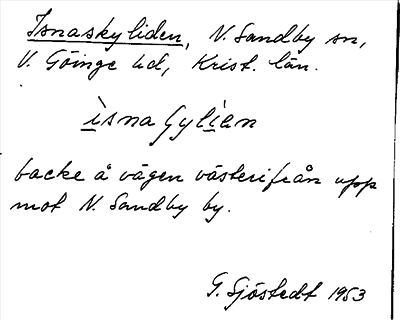 Isnaskyliden, N. Sandby sn,
V. Göinge hd, Krist. län.
ìsnaʃylìən
backe å vägen västerifrån upp
mot N. Sandby by.
G. Sjöstedt 1953